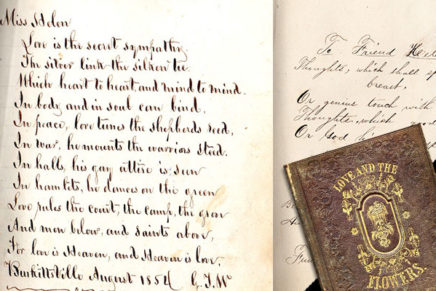 Miss Helen
Love is the secret sympathy,
The silver link the silken tie
Which heart to heart and mind to mind.
In body and in soul can bind.
In peace, love tunes the shepherds reed,
In war, he mounts the warriors steed.
In halls, his gay attire is seen
In hamlets, he dances on the green
Love rules the court, the camp, the grove
And men below, and saints above,
For love is Heaven, and Heaven is love,
Burkittsville August 1852
To Friend
Thoughts, which shall
breast,
Or genius touch with
Thoughts, which
Or God
LOVE AND THE
FLOWERS.